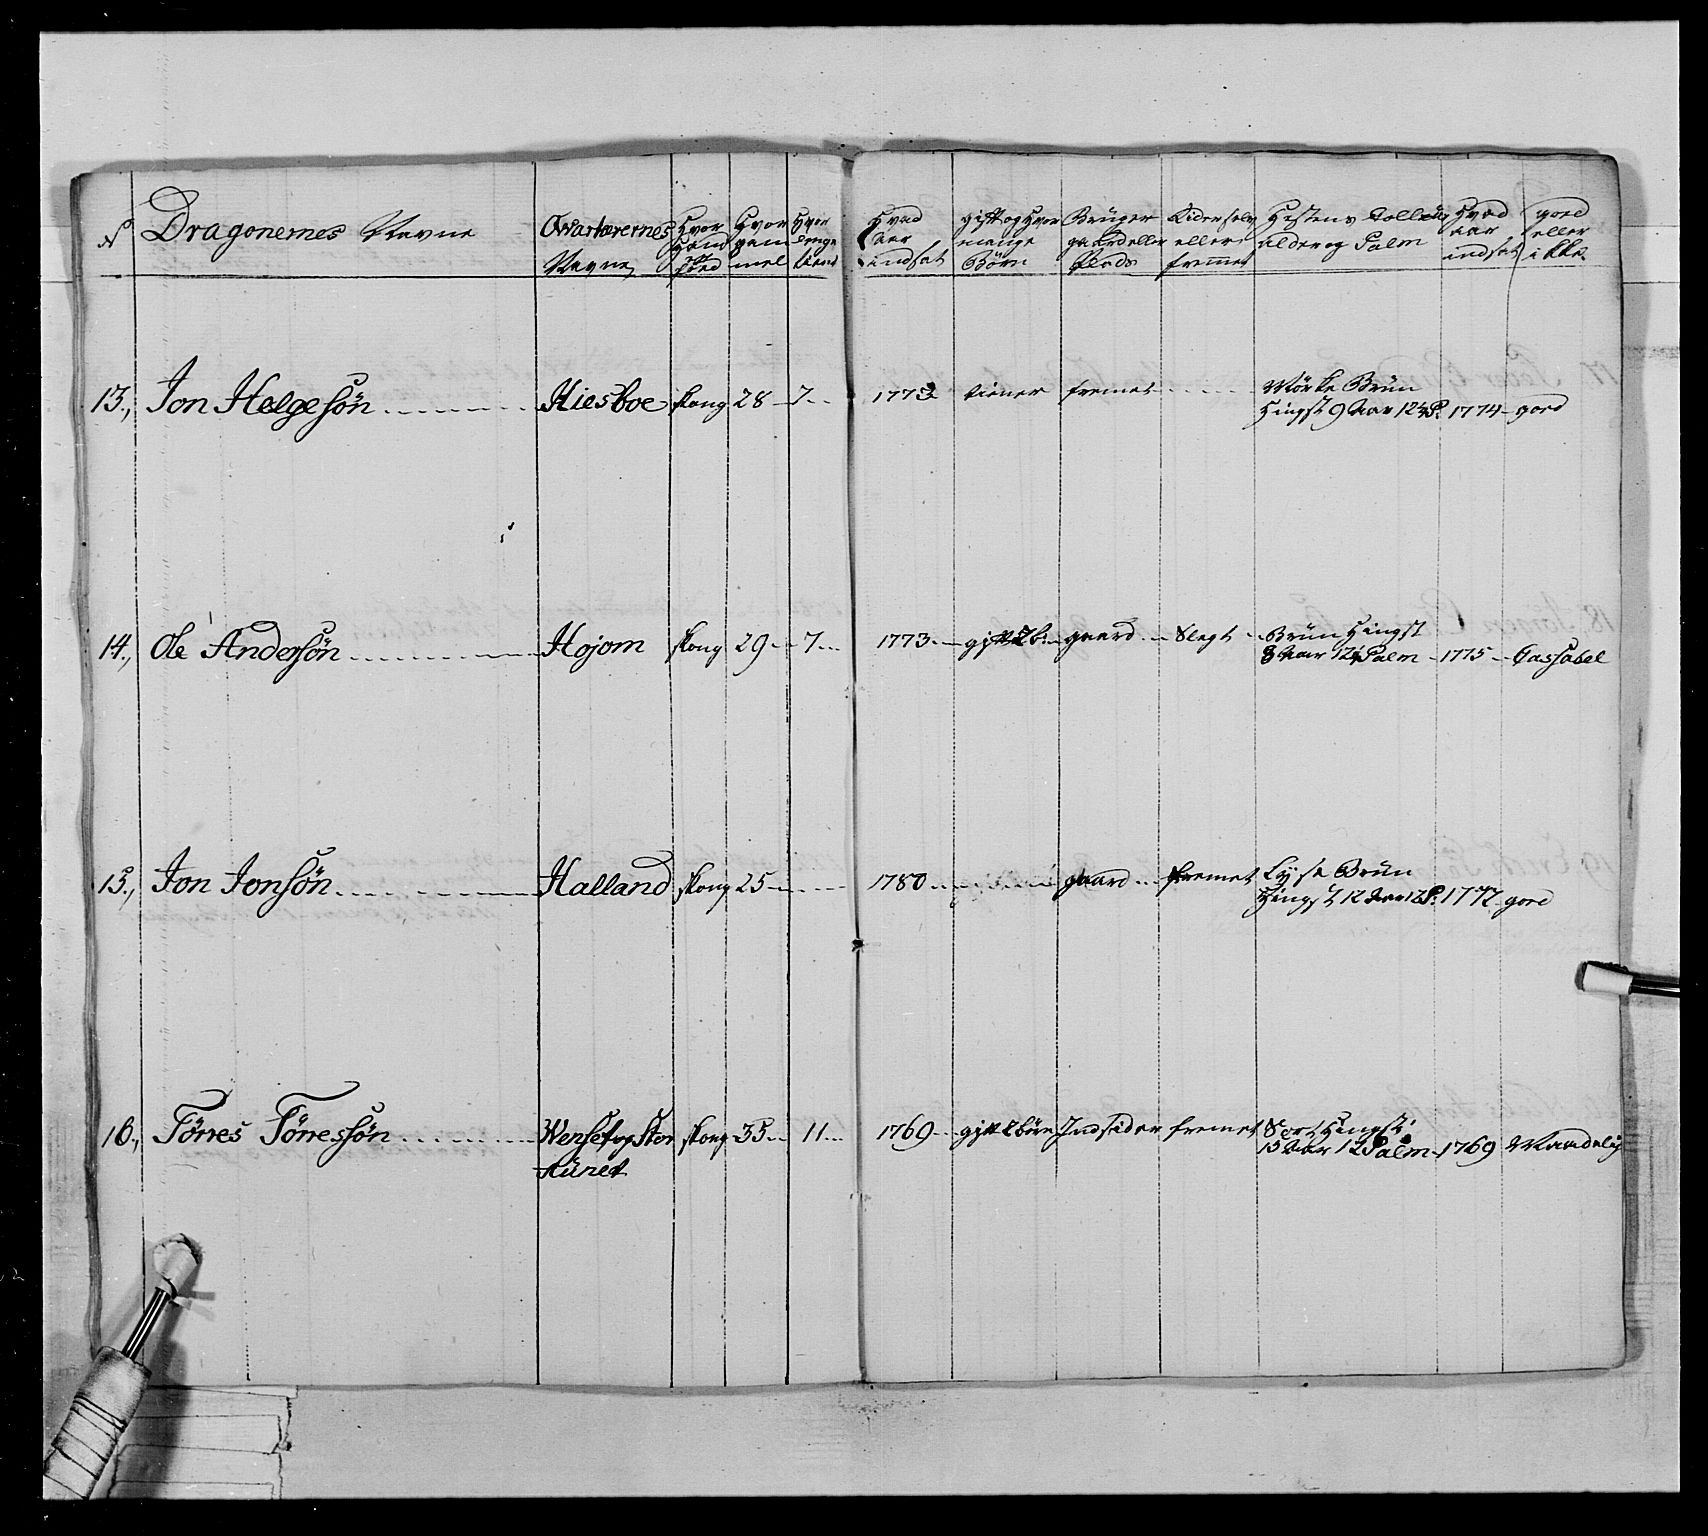 N Dragonernes Navne Qvarteerernes Navne Hvor fød Hvor gammel Hvor lenge tient Hvad aar indsat gift og Hvor mange Børn Brüger gaard eller Plads Rider selv eller fremmet Hestens Colleur alder og Palm Hvad aar indsat goed eller ikke
13., Jon Helgesøn Hiesboe skoug 28 7 1773 tiener fremet Mörke Brün
Hingst 9 Aar 12½ P. 1774 goed
14., Ole Andersøn Hojom skoug 29 7 1773 gift 2 b: gaard Slegt Brün Hingst
8 Aar 12½ Palm 1775 Passabel
15., Jon Jonsøn Halland skoug 25 1780 gaard fremet Lyse Brün
Hingst 12 Aar 12 P. 1772 goed
16., Törres Törressøn skoug 35 11 1769 gift 2 börn Indsider fremet Sort Hingst
15 Aar 12 Palm 1769 Maadelig